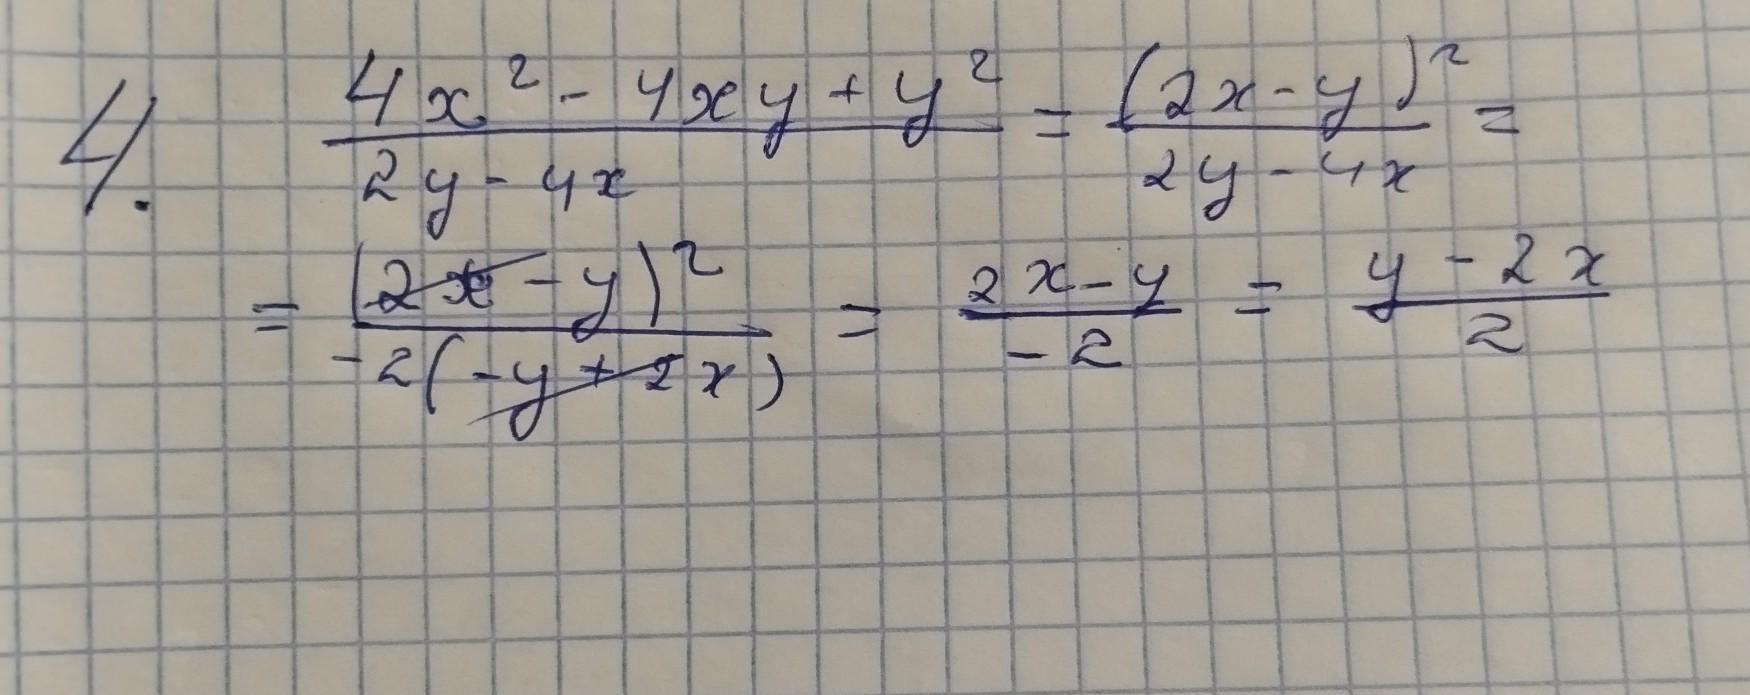 4. (4x² - 4xy + y²)/(2y - 4x) = (2x - y)²/(2y - 4x) =
= (2x - y)²/(-2(-y + 2x)) = (2x - y)/(-2) = (y - 2x)/2